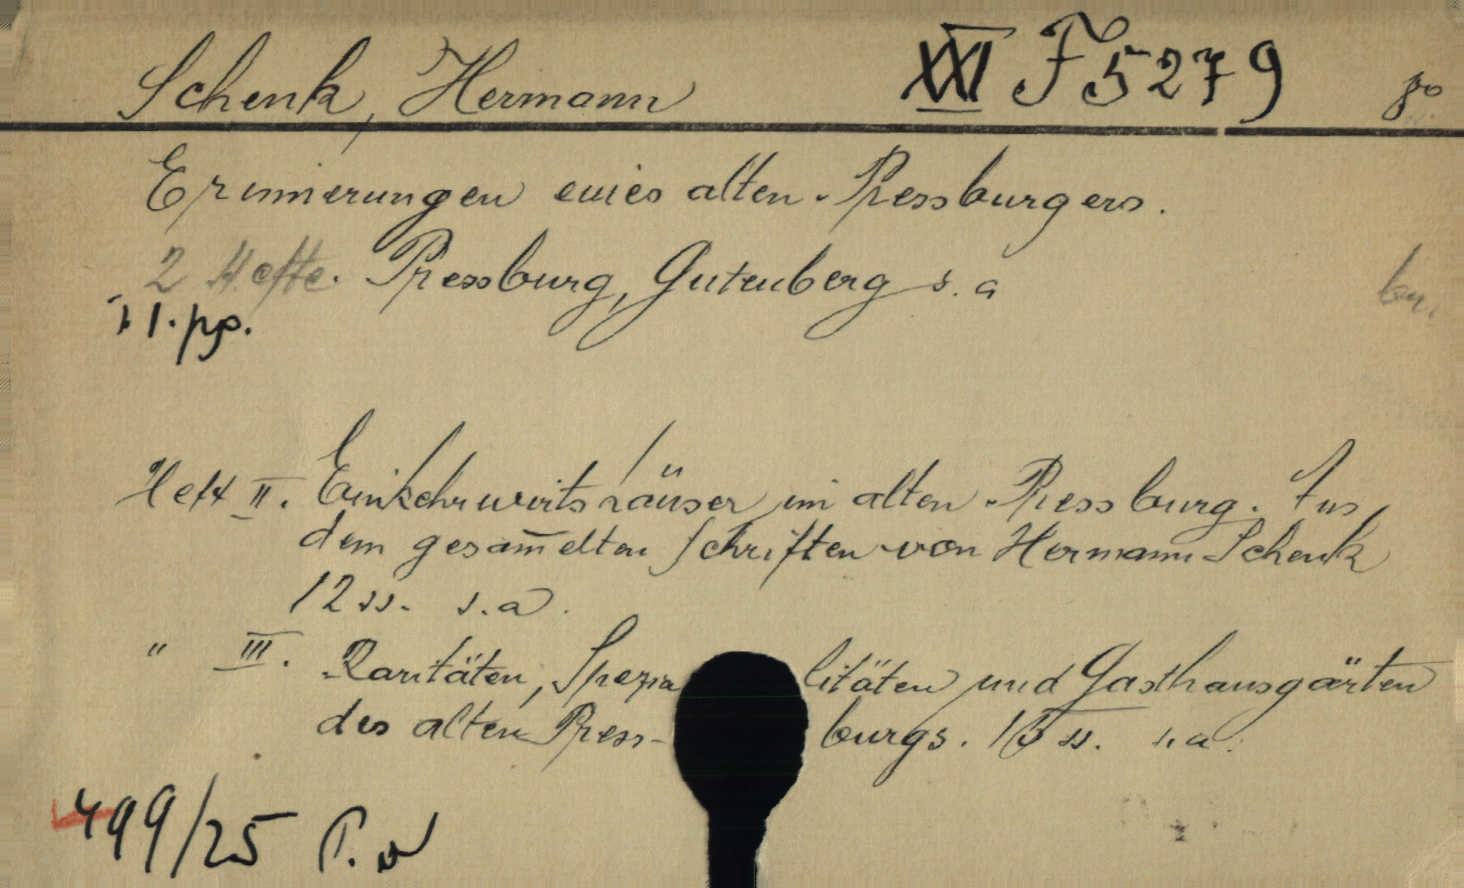 Schenk, Hermann XXI F 5279 8°
Erinnerungen eines alten Pressburgers.
2 Hefte. Pressburg, Gutenberg s. a
11. pp.
Heft II. Einkehrwirtshäuser im alten Pressburg. Aus
dem gesam̄elten Schriften von Hermann Schenk
12 ss. s. a.
" III. Raritäten, Spezialitäten und Gasthausgärten
des alten Press-burgs. 15 ss. s. a.
499/25